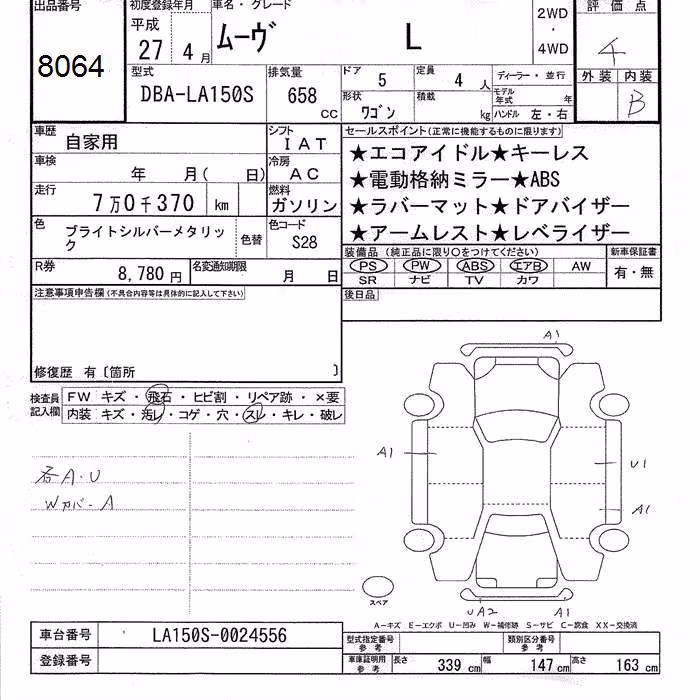 出品番号 初度登録年月 車名・グレード 評価点
8064 平成 27 4月 ムーヴ L 2WD ・ 4WD 4
型式 排気量 ドア 5 定員 4 人 ディーラー・並行 外装 内装
DBA-LA150S 658 cc 形状 ワゴン 積載 kg モデル年式 年 ハンドル 左・右 B
車歴 自家用 シフト IAT セールスポイント(正常に機能するものに限ります)
車検 年 月( 日) 冷房 AC ★エコアイドル★キーレス
走行 7万0千370 km 燃料 ガソリン ★電動格納ミラー★ABS
★ラバーマット★ドアバイザー
色 ブライトシルバーメタリック 色替 色コード S28 ★アームレスト★レベライザー
装備品(純正品に限り○をつけてください) 新車保証書
R券 8,780円 名変通知期限 月 日 PS PW ABS エアB AW 有・無
SR ナビ TV カワ
注意事項申告欄(不具合内容等は具体的に記入して下さい) 後日品
修復歴 有〔箇所 〕
検査員記入欄 FW キズ・飛石・ヒビ割・リペア跡・×要
内装 キズ・汚レ・コゲ・穴・スレ・キレ・破レ
A1
A1 U1
各A・U
Wカバ-A A1
スペア
UA2 A1
A-キズ E-エクボ U-凹み W-補修跡 S-サビ C-腐食 XX-交換済
車台番号 LA150S-0024556 型式指定番号 参考 類別区分番号 参考
登録番号 車庫証明用 参考 長さ 339 cm 幅 147 cm 高さ 163 cm